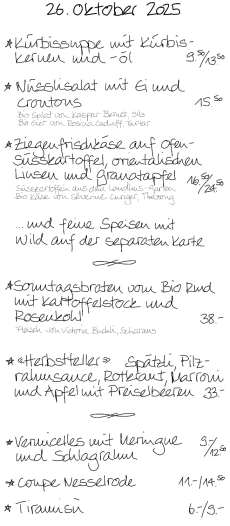 26. Oktober 2025
* Kürbissuppe mit Kürbis-
kernen und -öl 9.50/13.50
* Nüsslisalat mit Ei und
croutons 15.50
Bio Salat von Kaspar Berner, Sils
Bio Eier von
* Ziegenfrischkäse auf Ofen-
süsskartoffel, orientalischen
Linsen und Granatapfel 16.50/24.50
Süsskartoffeln aus dem Landhus-Garten
Bio Käse von
... und feine Speisen mit
Wild auf der separaten Karte
* Sonntagsbraten vom Bio Rind
mit Kartoffelstock und
Rosenkohl 38.-
Fleisch von Victoria
* «Herbstteller» Spätzli, Pilz-
rahmsauce, Rotkraut, Marroni
und Apfel mit Preiselbeeren 33.-
* Vermicelles mit Meringue 9.-/12.50
und Schlagrahm
* Coupe Nesselrode 11.-/14.50
* Tiramisù 6.-/9.-